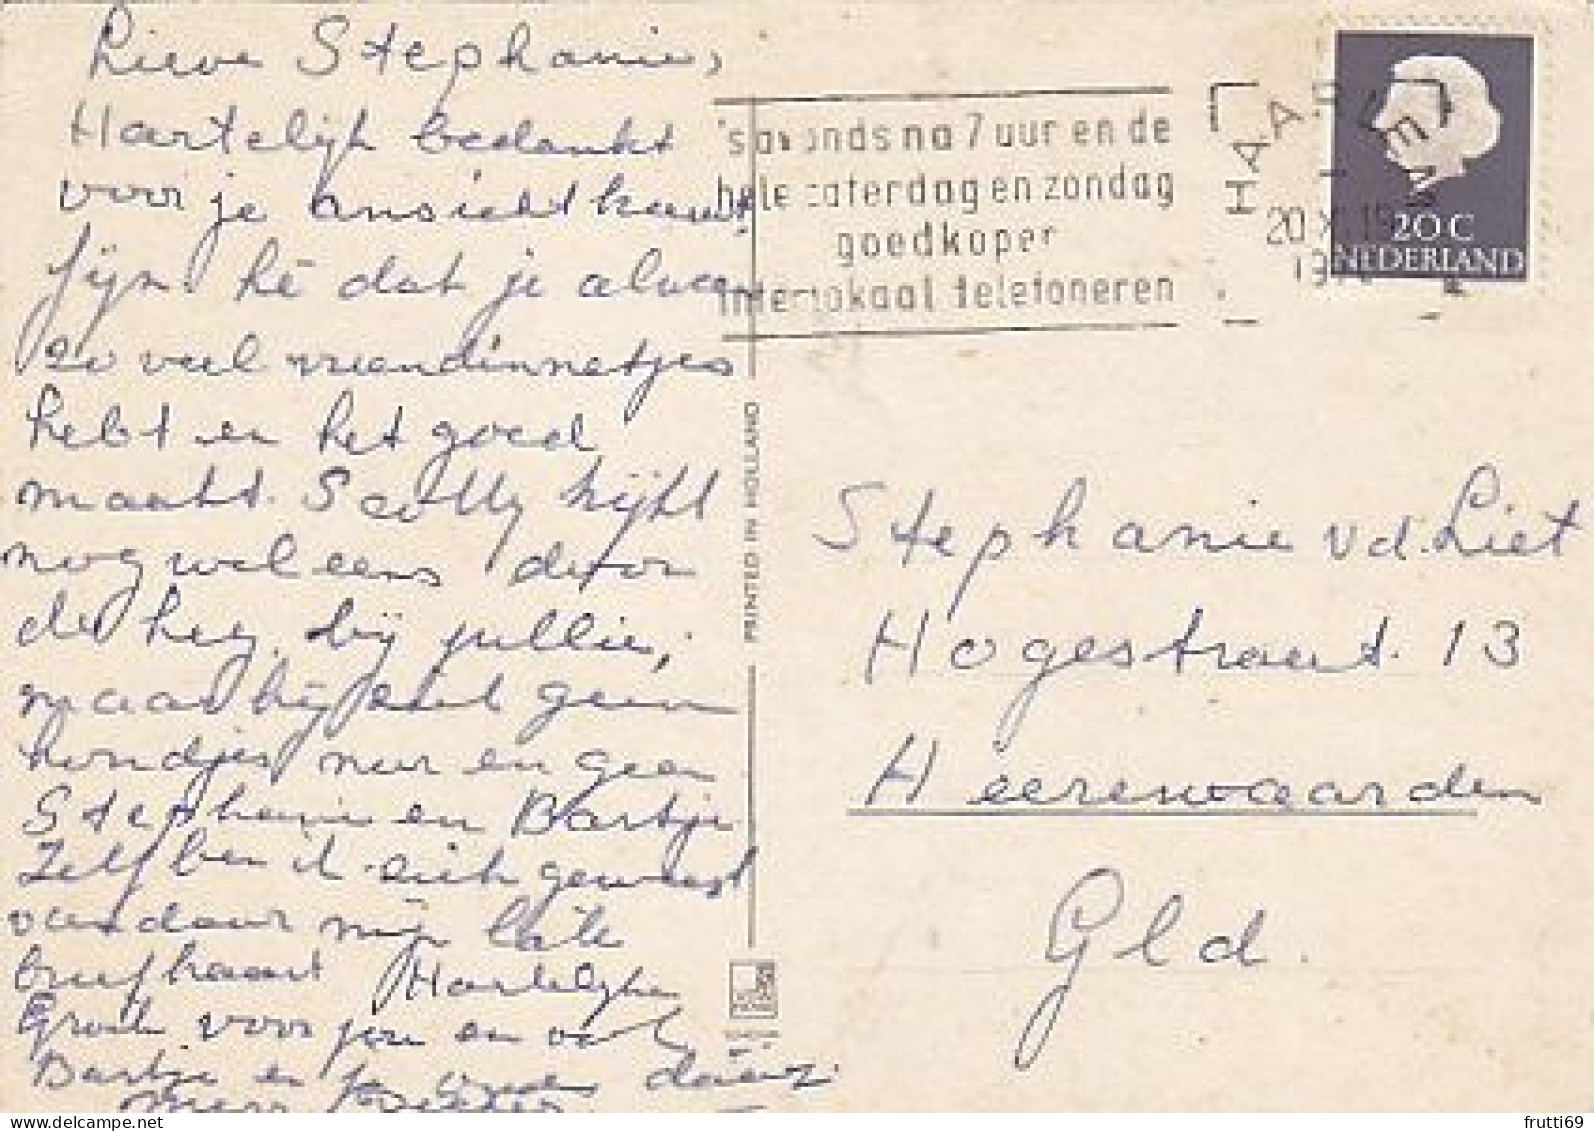 Lieve Stephanie,
Hartelijk bedankt
voor je ansichtkaart.
fijn hé dat je alweer
zo veel vriendinnetjes
hebt en het goed
maakt. Scotty kijkt
nog wel eens door
de heg, bij jullie,
maar hij ziet geen
hondjes meer en geen
Stephanie en Bartje
Zelf ben ik ziek geweest
vandaar mijn late
briefkaart Hartelijke
Groeten voor jou en ook
Bartje en je ouders
's avonds na 7 uur en de
hele zaterdag en zondag
goedkoper
interlokaal telefoneren
HAARLEM
20 XI 15
20 C
NEDERLAND
PRINTED IN HOLLAND
Stephanie v d. Liet
Hogestraat. 13
Heerewaarden
Gld.
delcampe.net
frutti69